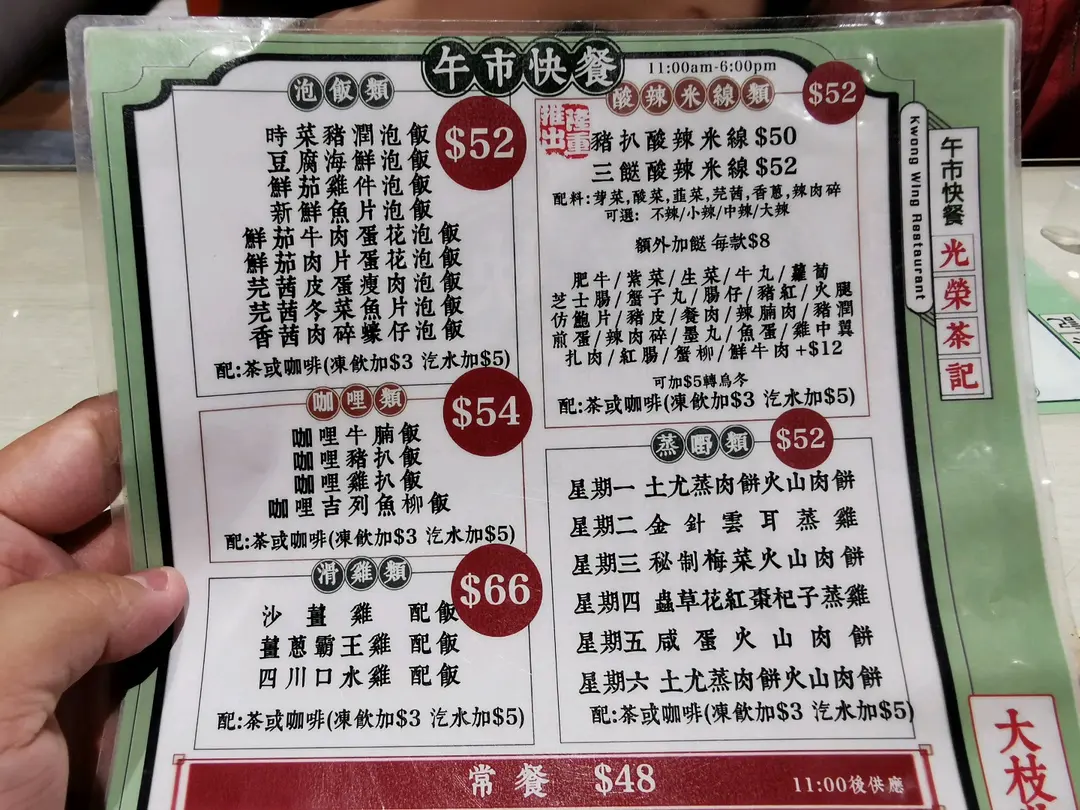 午市快餐
11:00am-6:00pm
泡飯類
$52
時菜豬潤泡飯
豆腐海鮮泡飯
鮮茄雞件泡飯
新鮮魚片泡飯
鮮茄牛肉蛋花泡飯
鮮茄肉片蛋花泡飯
芫茜皮蛋瘦肉泡飯
芫茜冬菜魚片泡飯
香茜肉碎蠔仔泡飯
配:茶或咖啡(凍飲加$3 汽水加$5)
咖哩類
$54
咖哩牛腩飯
咖哩豬扒飯
咖哩雞扒飯
咖哩吉列魚柳飯
配:茶或咖啡(凍飲加$3 汽水加$5)
滑雞類
$66
沙薑雞 配飯
薑蔥霸王雞 配飯
四川口水雞 配飯
配:茶或咖啡(凍飲加$3 汽水加$5)
酸辣米線類
$52
隆重推出
豬扒酸辣米線 $50
三餸酸辣米線 $52
配料:芽菜,酸菜,韮菜,芫茜,香蔥,辣肉碎
可選: 不辣/小辣/中辣/大辣
額外加餸 每款$8
肥牛/紫菜/生菜/牛丸/蘿蔔
芝士腸/蟹子丸/腸仔/豬紅/火腿
仿鮑片/豬皮/餐肉/辣腩肉/豬潤
煎蛋/辣肉碎/墨丸/魚蛋/雞中翼
扎肉/紅腸/蟹柳/鮮牛肉+$12
可加$5轉烏冬
配:茶或咖啡(凍飲加$3 汽水加$5)
蒸嘢類
$52
星期一 土尤蒸肉餅火山肉餅
星期二 金針雲耳蒸雞
星期三 秘制梅菜火山肉餅
星期四 蟲草花紅棗杞子蒸雞
星期五 咸蛋火山肉餅
星期六 土尤蒸肉餅火山肉餅
配:茶或咖啡(凍飲加$3 汽水加$5)
常餐 $48
11:00後供應
Kwong Wing Restaurant
午市快餐
光榮茶記
大枝